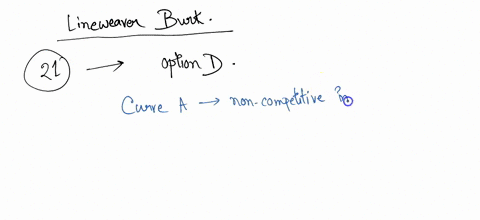 Lineweaver Burk.
21 → option D.
Curve A → non-competitive in